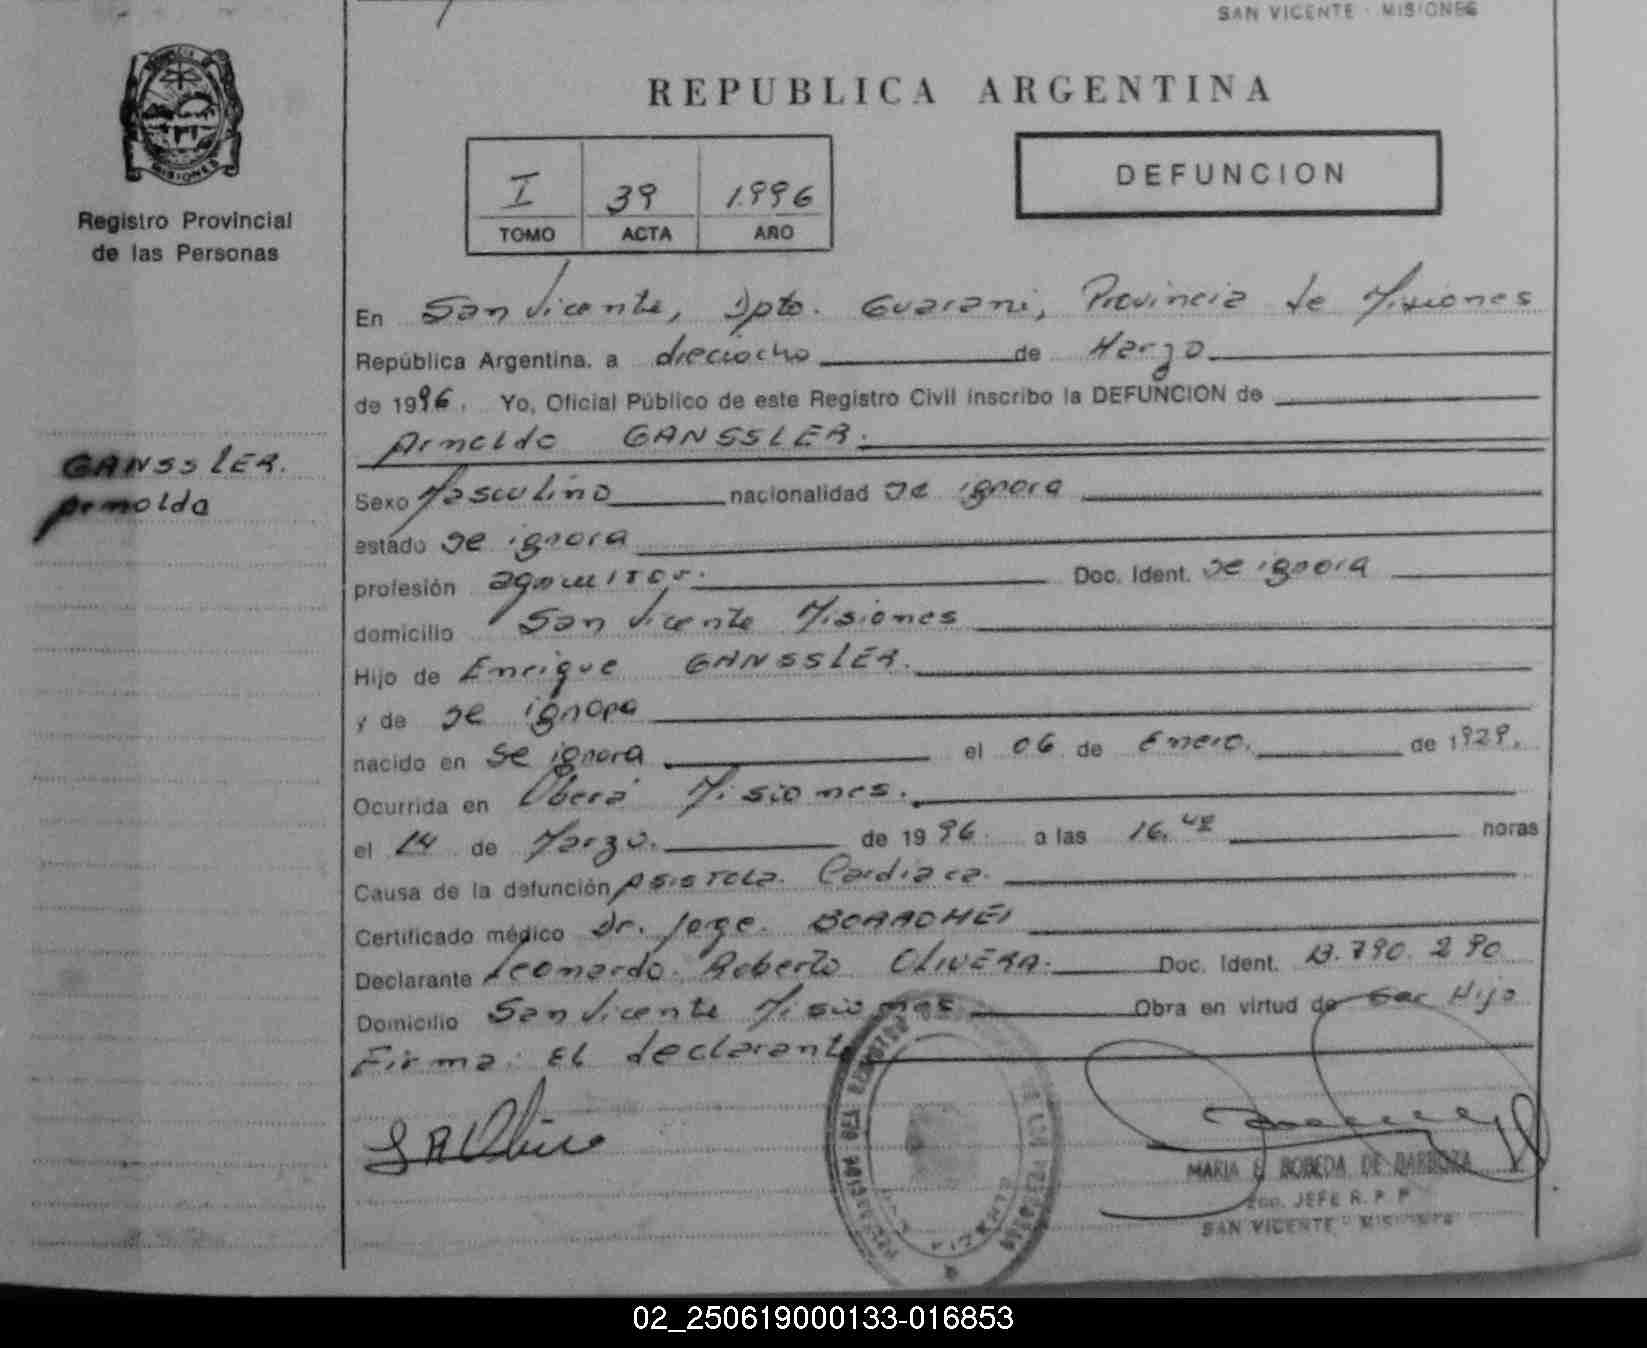 SAN VICENTE - MISIONES
REPUBLICA ARGENTINA
MISIONES
Registro Provincial
de las Personas
I 39 1.996
TOMO ACTA AÑO
DEFUNCION
En San Vicente, Dpto. Guarani, Provincia de Misiones
República Argentina, a dieciocho de Marzo.
de 1996. Yo, Oficial Público de este Registro Civil inscribo la DEFUNCION de
Arnoldo GANSSLER.
GANSSLER.
Arnoldo
Sexo Masculino nacionalidad se ignora
estado se ignora
profesión agricultor. Doc. Ident. se ignora
domicilio San Vicente Misiones
Hijo de Enrique GANSSLER.
y de se ignora
nacido en se ignora el 06 de Enero. de 1929.
Ocurrida en Oberá Misiones.
el 14 de Marzo. de 1996. a las 16. horas
Causa de la defunción Cardiaca.
Certificado médico Dr. Jorge.
Declarante Leonardo Roberto OLIVERA. Doc. Ident. 13.790.290
Domicilio San Vicente Misiones Obra en virtud de ser Hijo
Firma: El declarante
MARIA E. BOBEDA DE BARBOZA
2do. JEFE R. P. P.
SAN VICENTE - MISIONES
02_250619000133-016853